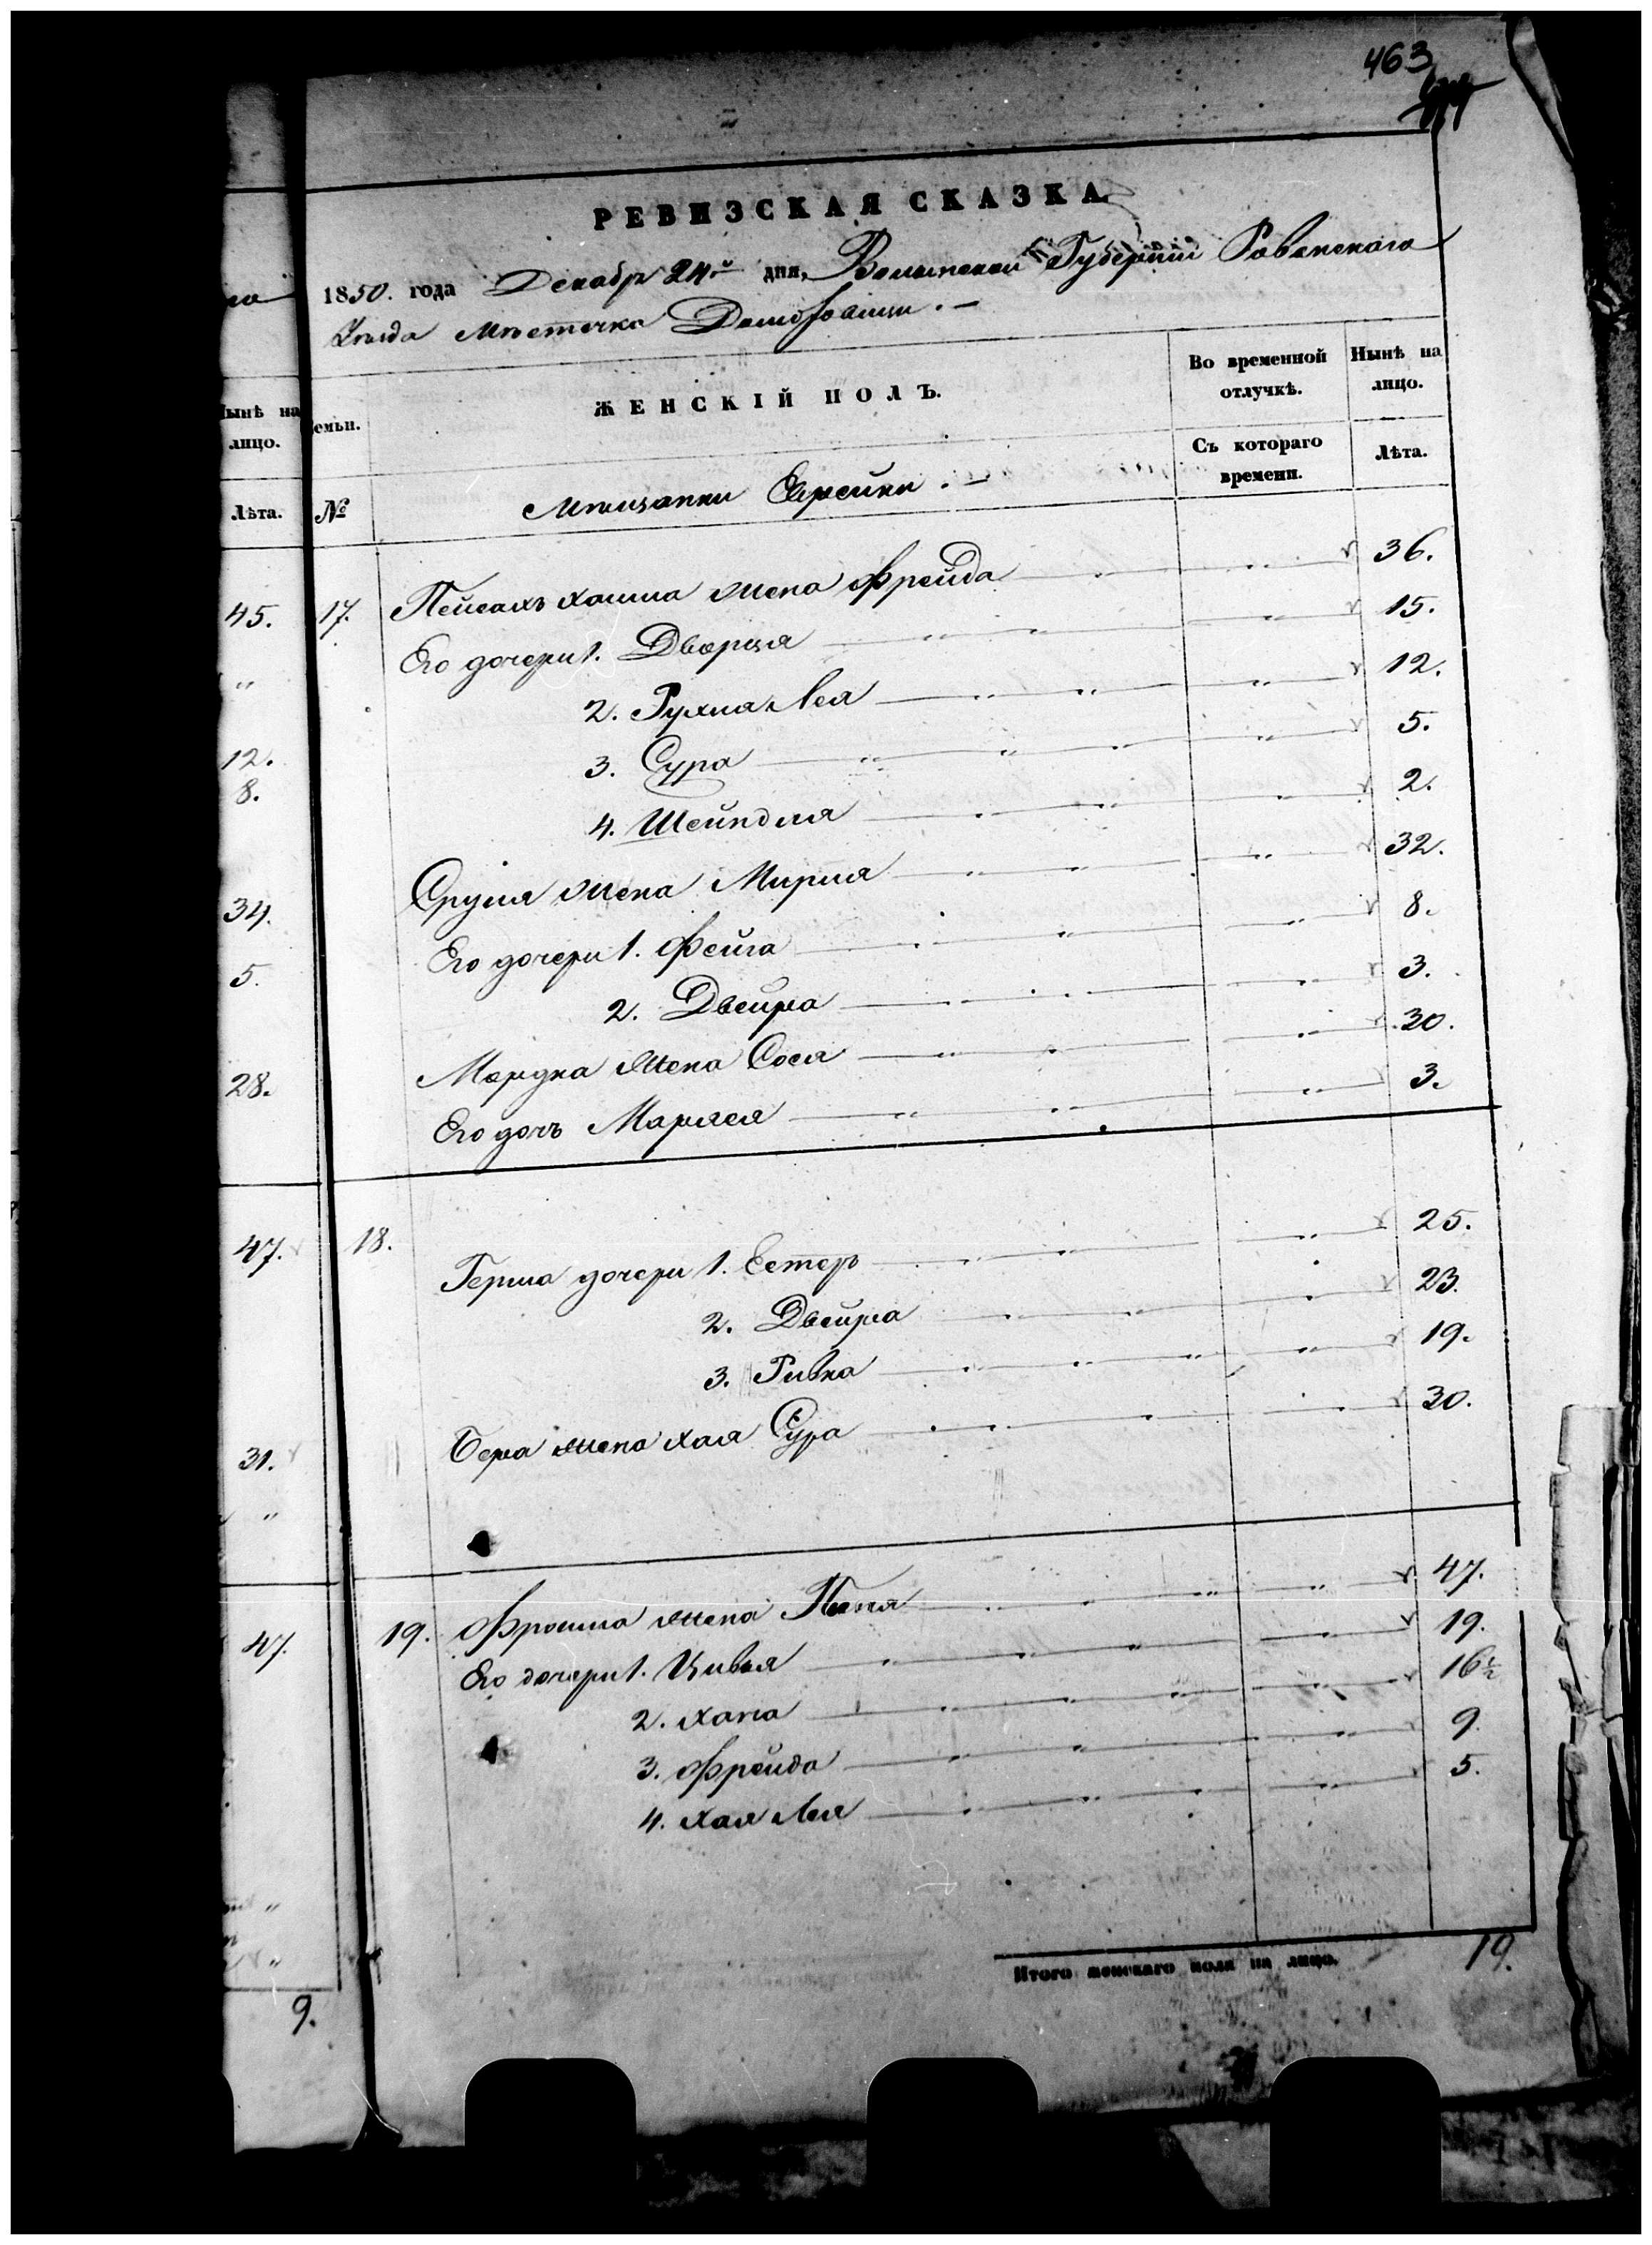 463
РЕВИЗСКАЯ СКАЗКА
1850. года Декабр 24й дня, Волынской Губернии Ровенского
Уѣзда Мѣстечка
ЖЕНСКІЙ ПОЛЪ.
Во временной отлучкѣ.
Нынѣ на лицо.
Нынѣ на лицо.
семьи.
Съ котораго времени.
Лѣта.
Лѣта.
№
Мѣщанки Еврейки . —
45. 17. Пейсахъ Хаима жена Фрейда 36.
Его дочери 1. Дворця 15.
" 2. Рухля Лея 12.
12. 3. Сура 5.
8. 4. Шейндля 2.
34. Сруля жена Мирля 32.
5. Его дочери 1. Фейга 8.
2. Двейра 3.
28. Мордка жена Сося 30.
Его дочь Маряся 3.
47. 18. Герша дочери 1. Естеръ 25.
2. Двейра 23.
3. Ривка 19.
31. Берка жена Хая Сура 30.
"
47. 19. Фроима жена 47.
Его дочери 1. Цивья 19.
2. Хана 16½
3. Фрейда 9.
4. Хая Лея 5.
Итого женскаго пола на лицо. 19.
9.